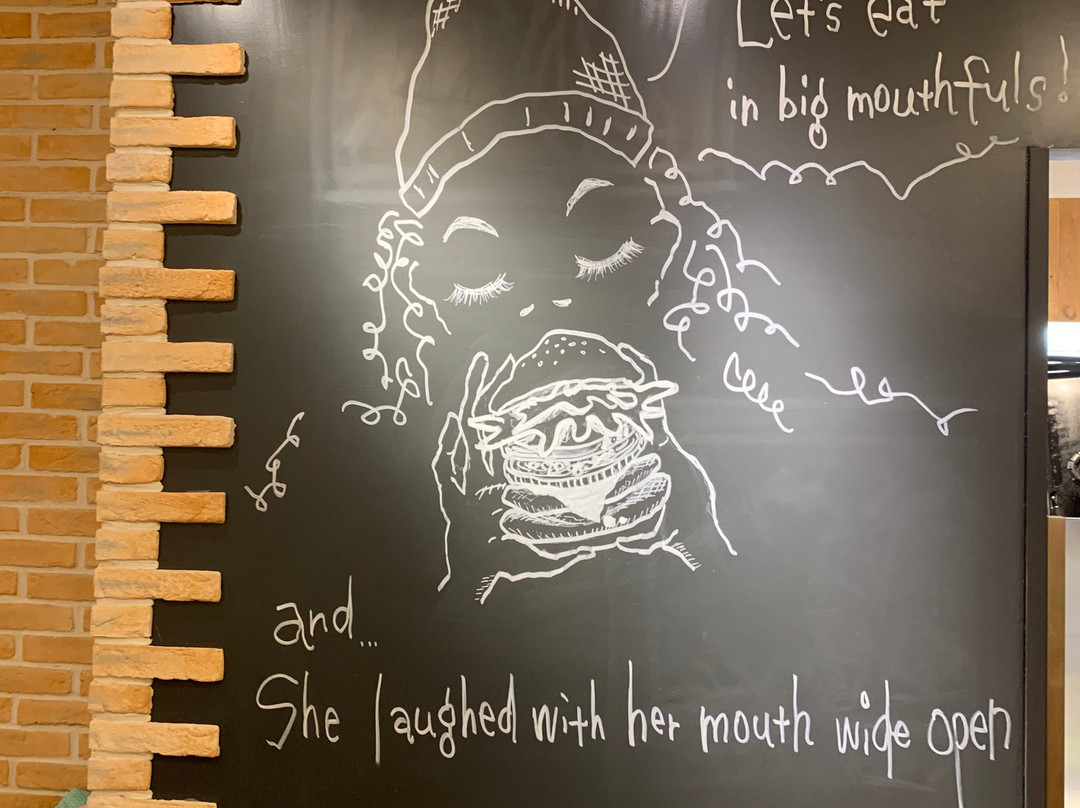 Let's eat
in big mouthfuls!
and...
She laughed with her mouth wide open